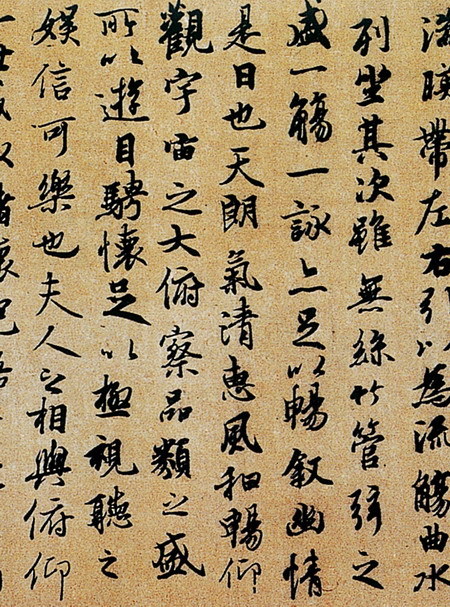 湍暎帶左右引以為流觴曲水
列坐其次雖無絲竹管弦之
盛一觴一詠亦足以暢叙幽情
是日也天朗氣清惠風和暢仰
觀宇宙之大俯察品類之盛
所以遊目騁懷足以極視聽之
娛信可樂也夫人之相與俯仰
一世或取諸懷抱悟